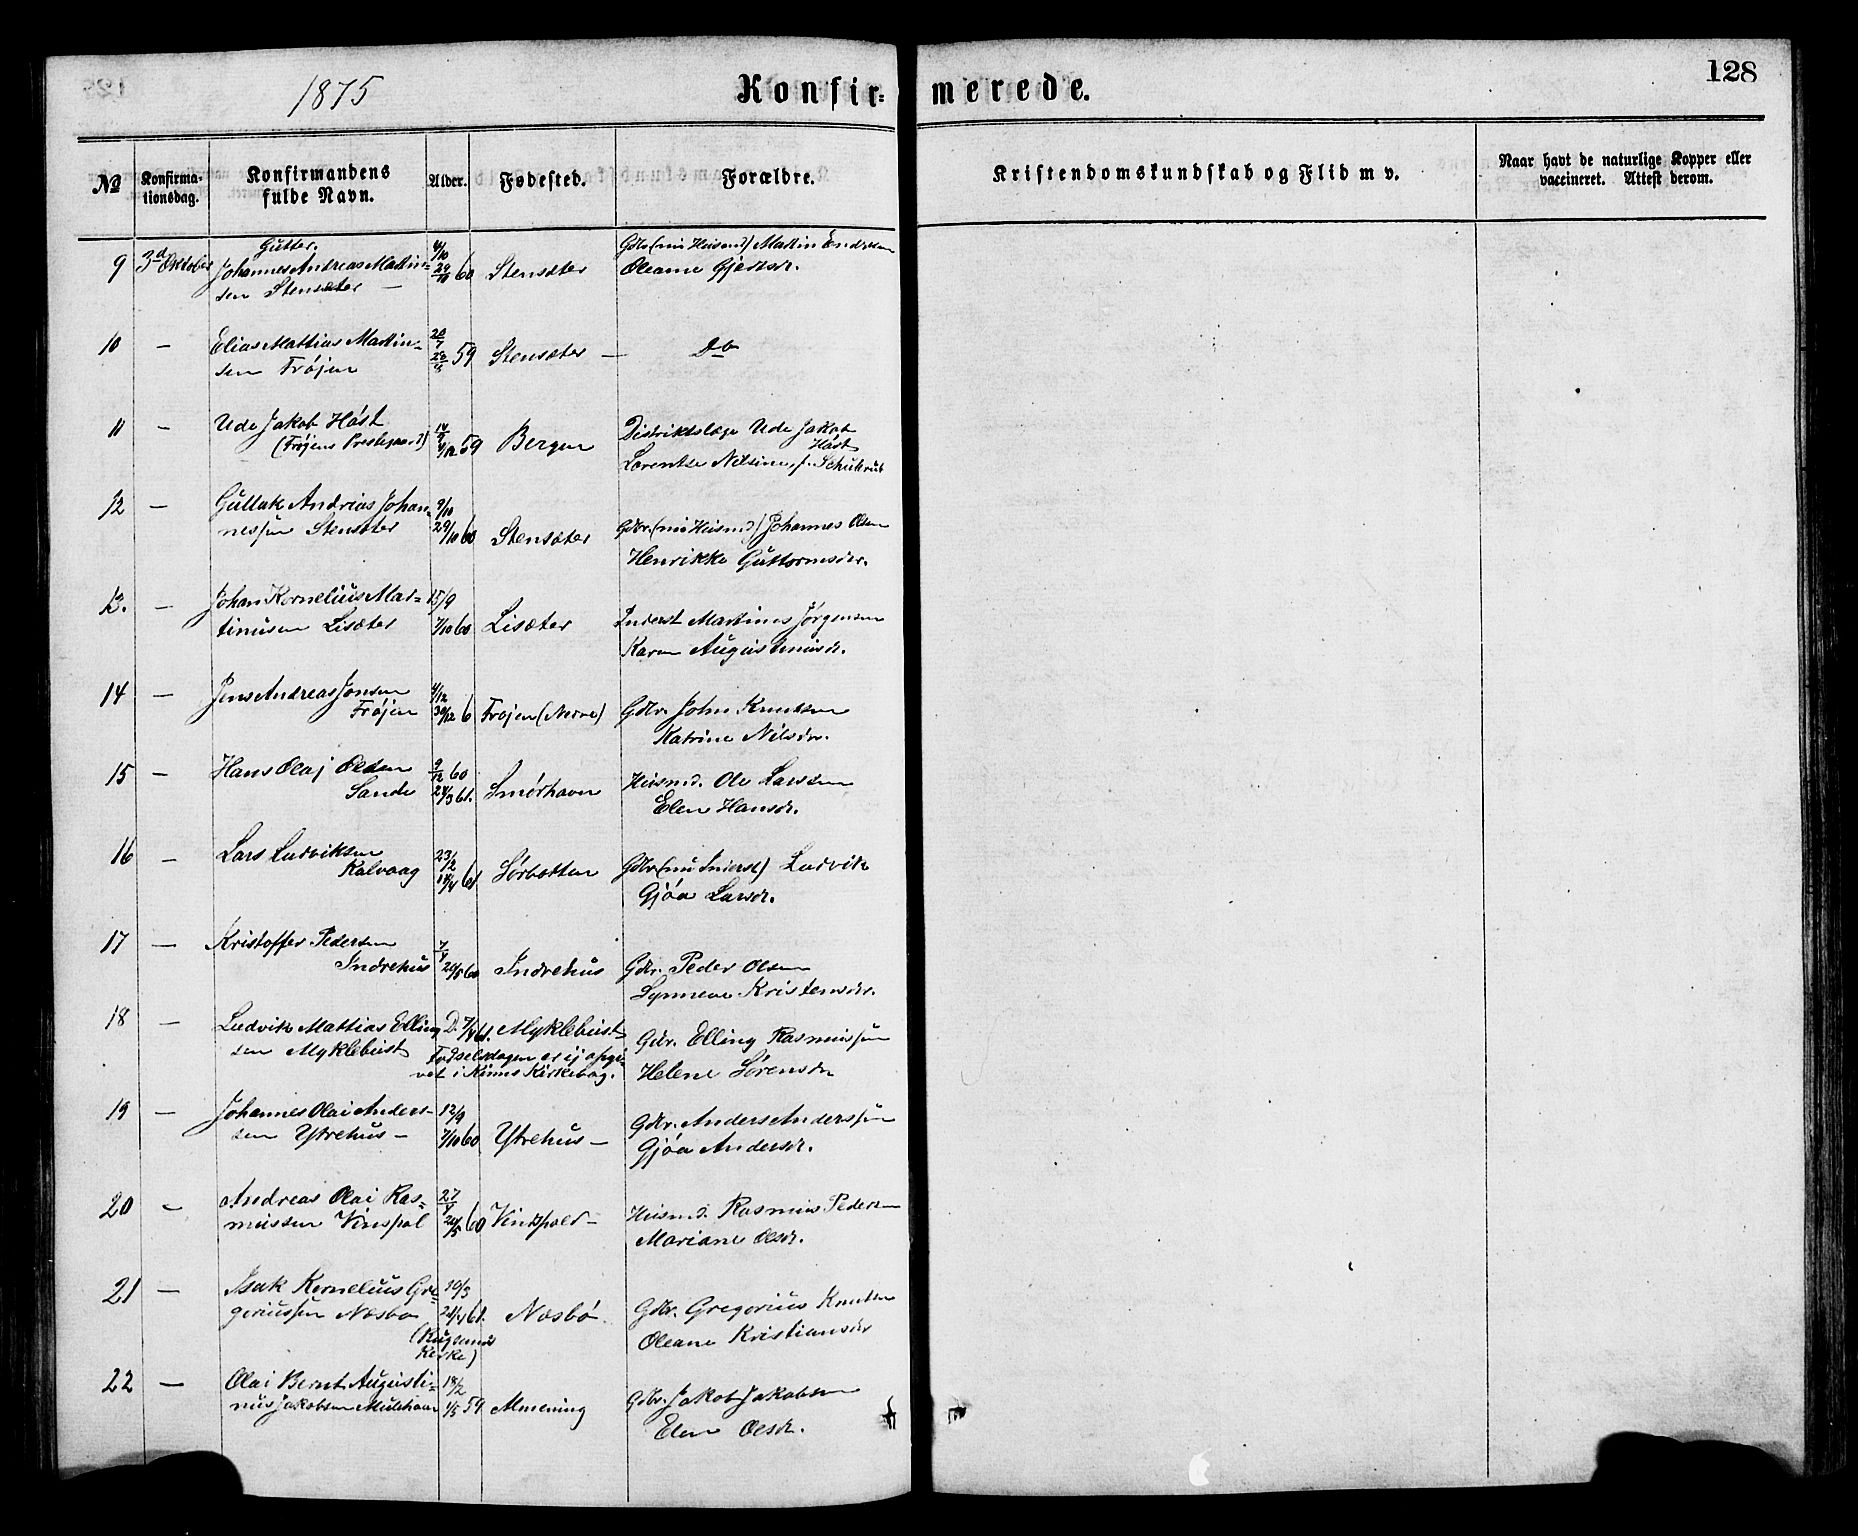 1875
Konfir=
merede.
128
No
Konfirma-
tionsdag.
Konfirmandens
fulde Navn.
Alder.
Fødested.
Forældre.
Kristendomskundskab og Flid m v.
Naar havt de naturlige Kopper eller
vaccineret. Attest derom.
Gutter.
9 3d Oktober Johannes Andreas Martin=
sen Stensæter —
4/10
29/10 60 Stensæter
Gdbr (nu Husmd) Martin Endresen
Oleane Gjertsdr.
10 — Elias Mattias Martin=
sen Frøjen
20/7
28/8 59 Stensæter — Do
11 — Ude Jakob Høst
(Frøjens Prestegaard)
14/9
4/12 59 Bergen
Distriktslæge Ude Jakob
Høst
Lorentse Nilsine, f.
12 — Gullak Andrias Johan=
nessen Stensæter
9/10
29/10 60 Stensæter
Gdbr. (nu Husmd) Johannes Olsen
Henrikke Guttormsdr.
13. — Johan Kornelius Mar=
tinusen Lisæter
15/9
7/10 60 Lisæter
Inderst Martinus Jørgensen
Karen Augustinusdr.
14 — Jens Andreas Jonsen
Frøjen
4/12
30/12 6 Frøjen (Nedre)
Gdbr. John Knutsen
Katrine Nilsdr.
15 — Hans Olaj Olsen
Sande
9/12 60
24/3 61. Smørhavn
Husmd. Ole Larssen
Elen Hansdr.
16 — Lars Ludviksen
Kalvaag
23/2
14/4 61 Sørbotten
Gdbr (nu Inderst) Ludvik
Gjøa Larsdr.
17 — Kristoffer Pedersen
Indrehus
7/4
20/5 60 Indrehus
Gdbr. Peder Olsen
Synneve Kristensdr.
18 — Ludvik Mattias Elling
sen Myklebust
D. 7/4 61. Myklebust
Fødselsdagen er ej opgi=
vet i Kinns Kirkebog.
Gdbr. Elling Rasmussen
Helene Sørensdr
19 — Johannes Olai Anders=
sen Ytrehus —
12/9
7/10 60 Ytrehus —
Gdbr. Anders Anderssen
Gjøa Andersdr.
20 — Andreas Olai Ras=
mussen Vinspol
27/4
20/5 60 Vindspold —
Husmd. Rasmus Pedersen
Mariane Olsdr.
21 — Isak Kornelius Gre=
goriussen Næsbø
(Kirke)
10/3
21/4 61. Næsbø.
Gdbr. Gregorius Knutsen
Oleane Kristiansdr
22 — Olai Bernt Augusti=
nus Jakobsen Mulehavn
18/2
1/5 59 Almenning
Gdbr. Jakob Jakobsen
Elen Olsdr.